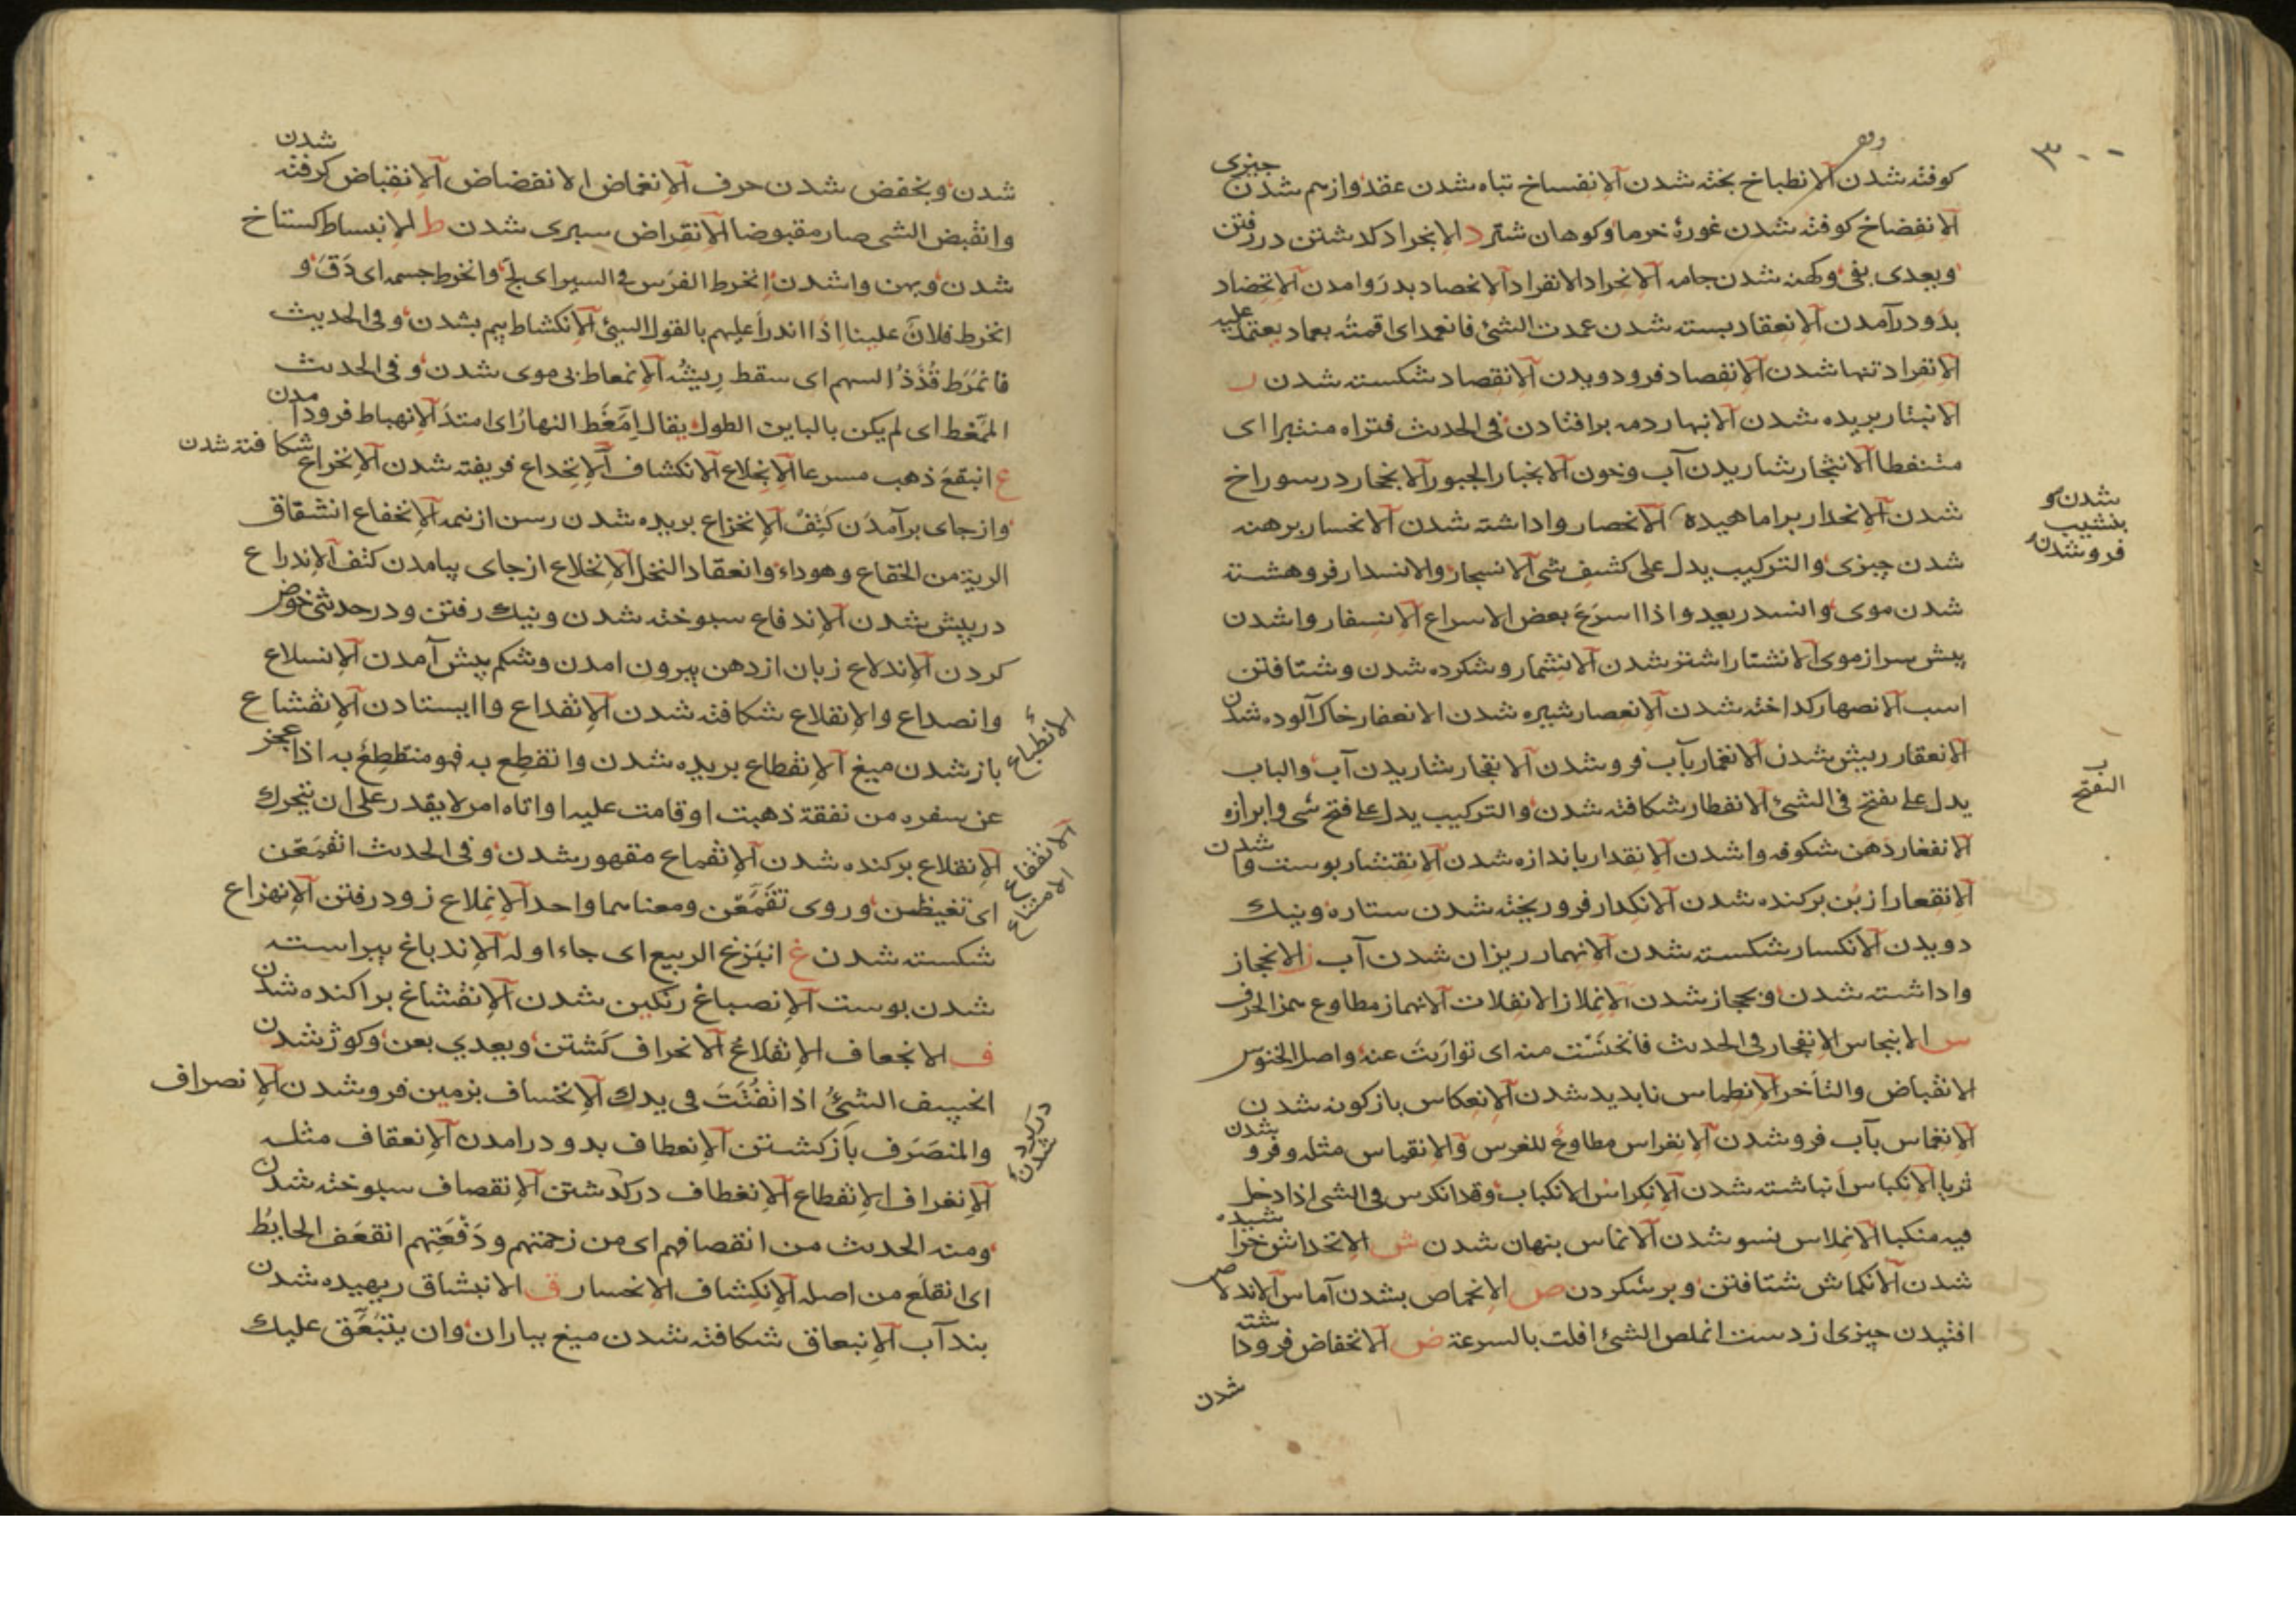 ۳۰۰
كوفته شدن الانطباخ پخته شدن الانفساخ تباه شدن عقد وازهم شدن چیزی
الانفضاخ كوفته شدن غورهٔ خرما وكوهان شتر د الانجراد كذشتن در رفتن
ويعدى بفى وكهنه شدن جامه الانجراد الانفراد الانحصاد بدروامدن الانخضاد
بدو درآمدن الانعقاد بسته شدن عمدت الشئ فانعمد اى اقمته بعماد يعتمد عليه
الانفراد تنها شدن الانفصاد فرود ویدن الانقصاد شكسته شدن ر
الانبتار بریده شدن الانبهار دمه برافتادن فى الحديث فتراه منثبرا اى
متنفطا الانثجار شاریدن آب وخون الانجبار الجبور الانجحار در سوراخ
شدن الانحدار براماهیده الانحصار واداشته شدن الانحسار برهنه
شدن چیزی والتركيب يدل على كشف شى الانسجار والانسدار فروهشته
شدن موى وانسدر يعدو اذا اسرع بعض الاسراع الانسفار واشدن
پیش سر از موى الانشتار اشتر شدن الانشمار وشكرده شدن وشتافتن
اسب الانصهار كداخته شدن الانعصار شیره شدن الانعفار خاك آلوده شدن
الانعقار ریش شدن الانغمار بآب فرو شدن الانفجار شاریدن آب والباب
يدل على تفتح فى الشئ الانفطار شكافته شدن والتركيب يدل على فتح شى وابرازه
الانفغار دهن شكوفه واشدن الانقدار باندازه شدن الانقشار پوست وا شدن
الانقعار از بن بركنده شدن الانكدار فرو ریخته شدن ستاره ونیك
دویدن الانكسار شكسته شدن الانهمار ریزان شدن آب ز الانحجاز
واداشته شدن وبحجاز شدن الانملاز الانفلات الانهماز مطاوع همز الحرف
س الانبجاس الانفجار فى الحديث فانخنست منه اى تواريت عنه واصل الخنوس
الانقباض والتأخر الانطماس ناپدید شدن الانعكاس بازكونه شدن
الانغماس بآب فرو شدن الانغراس مطاوع للغرس والانقماس مثله وفرو شدن
ثريا الانكباس انباشته شدن الانكراس الانكباب وقد انكرس فى الشى اذا دخل
فيه منكبا الانملاس نسو شدن الانماس پنهان شدن ش الانخداش خراشیده
شدن الانكماش شتافتن وبر شكردن ص الانخماص بشدن آماس الاندلاص
افتیدن چیزی از دست انملص الشئ افلت بالسرعة ض الانخفاض فرو داشته
شدن
شدن و
بنشیب
فروشدن
التفتح
شدن وبخفض شدن حرف الانغماض الانفضاض الانقباض كرفته شدن
وانقبض الشى صار مقبوضا الانقراض سپری شدن ط الانبساط كستاخ
شدن وپهن واشدن انخرط الفرس فى السير اى لج وانخرط جسمه اى دق و
انخرط فلان علينا اذا اندرأ عليهم بالقول السيئ الانكشاط بیم بشدن وفى الحديث
فانمرط قذذ السهم اى سقط ريشه الانمعاط بی موی شدن وفى الحديث
الممغط اى لم يكن بالباين الطول يقال امغط النهار اى امتد الانهباط فرود آمدن
ع انبقع ذهب مسرعا الانجلاع الانكشاف الانخداع فریفته شدن الانخراع شكافته شدن
وازجاى برآمدن كتف الانخزاع بریده شدن رسن از نیمه الانخفاع انشقاق
الرية من الخفاع وهو داء وانعقاد النخل الانخلاع ازجاى بیامدن كتف الاندراع
در پیش شدن الاندفاع سپوخته شدن ونیك رفتن ودر حدیثى خوض
كردن الاندلاع زبان از دهن بیرون امدن وشكم پیش آمدن الانسلاع
وانصداع والانقلاع شكافته شدن الانقداع واایستادن الانقشاع
باز شدن میغ الانقطاع بریده شدن وانقطع به فهو منقطع به اذا عجز
عن سفره من نفقة ذهبت او قامت عليه او اتاه امر لا يقدر على ان يتحرك
الانقلاع بركنده شدن الانقماع مقهور شدن وفى الحديث انقمعن
اى تغيظن وروى تقمعن ومعناهما واحد الانملاع زود رفتن الانهزاع
شكسته شدن غ انبزغ الربيع اى جاء اوله الاندباغ پیراسته
شدن پوست الانصباغ رنكین شدن الانفشاغ پراكنده شدن
ف الانجعاف الانقلاع الانحراف كشتن ويعدي بعن وكوژ شدن
انخسف الشئ اذا تفتت فى يدك الانخساف بزمین فرو شدن الانصراف
والمنصرف بازكشتن الانعطاف بدو درامدن الانعقاف مثله
الانغراف الانقطاع الانغطاف در كذشتن الانقصاف سپوخته شدن
ومنه الحديث من انقصافهم اى من زحمتهم ودفعتهم انقعف الحايط
اى انقلع من اصله الانكشاف الانحسار ق الانبثاق ربهیده شدن
بند آب الانبعاق شكافته شدن میغ بباران وان ينبعق عليك
الانطباع
الانقفاع
الامتناع